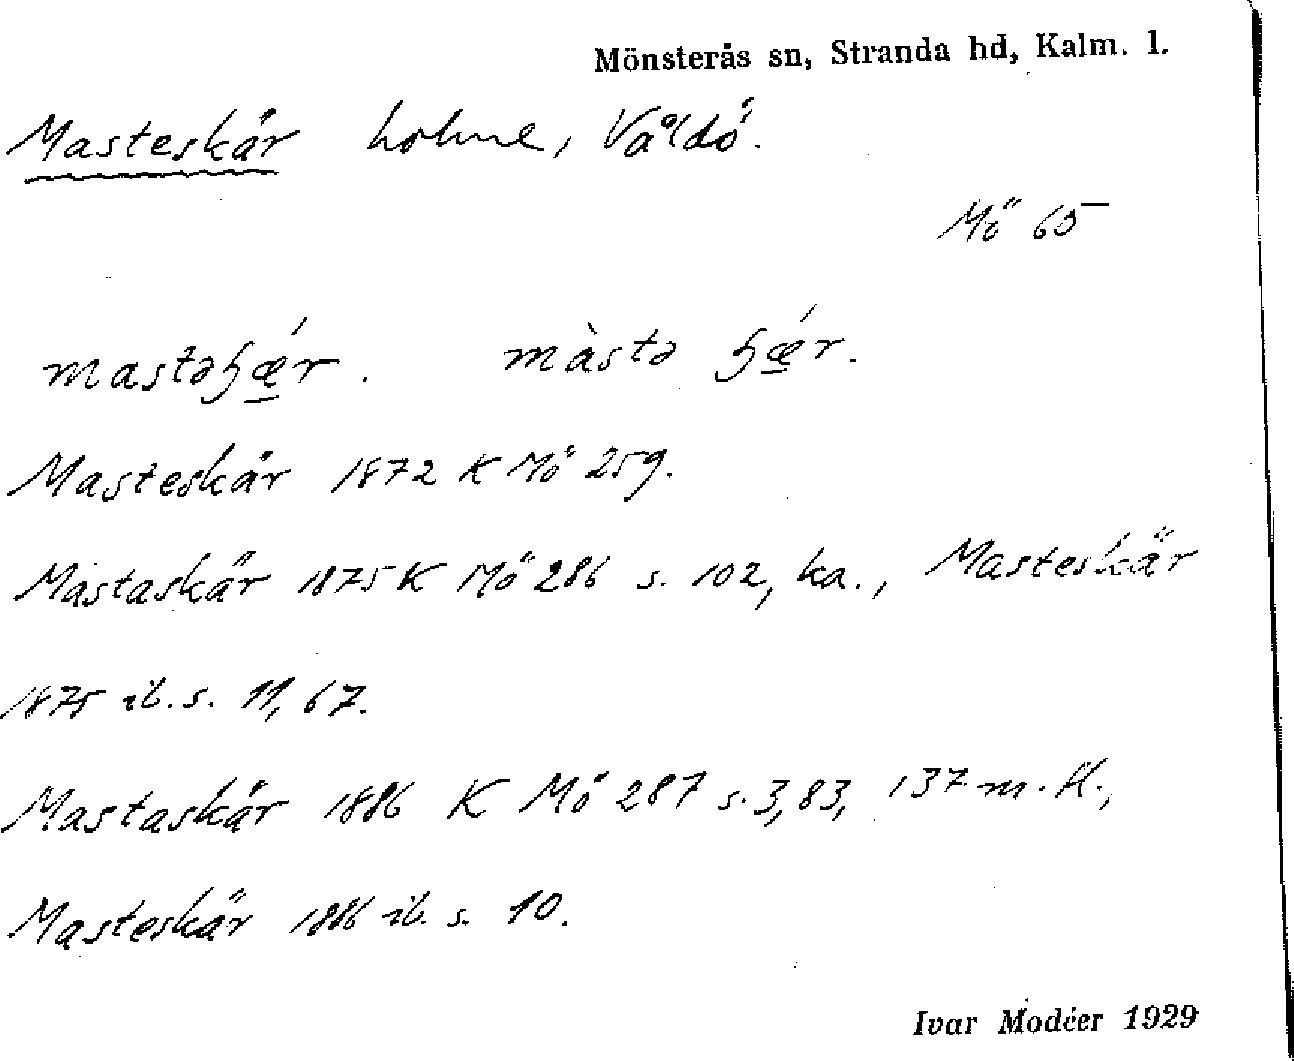 Mönsterås sn, Stranda hd, Kalm. l.
Masteskär holme, Vålö.
Mö 65
mastəɧǽr. màstə ɧǽr.
Masteskär 1872 K Mö 259.
Mastaskär 1875 K Mö 286 s. 102, ka., Masteskär
1875 ib. s. 11, 67.
Mastaskär 1886 K Mö 287 s. 3, 83, 137 m. fl.,
Masteskär 1886 ib. s. 10.
Ivar Modéer 1929